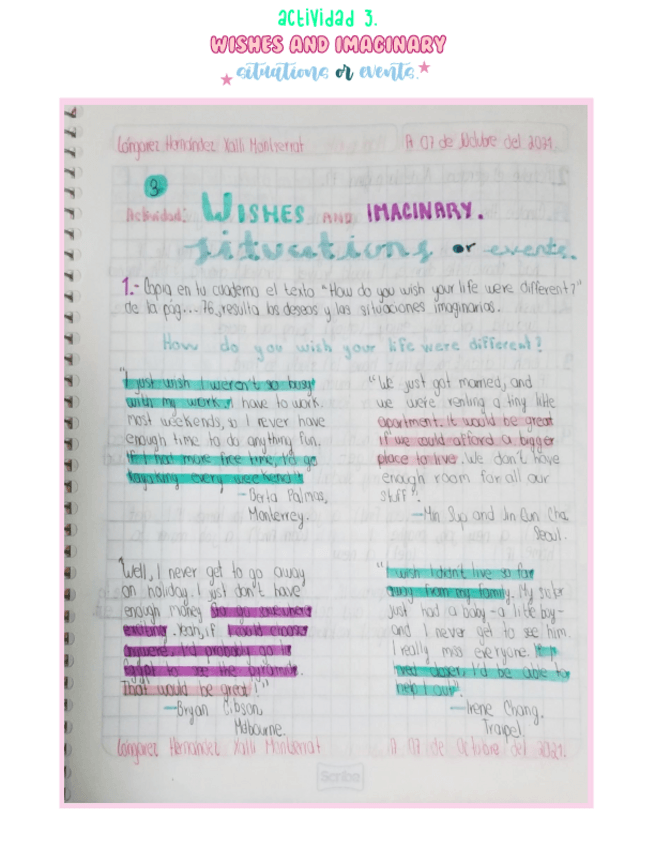 actividad 3.
WISHES AND IMAGINARY
situations or events.
Góngora Hernández Xalli Montserrat
A 07 de Octubre del 2021.
3
Actividad: WISHES AND IMAGINARY.
situations or events.
1.- Copia en tu cuaderno el texto "How do you wish your life were different?"
de la pág... 76, resulta los deseos y las situaciones imaginarias.
How do you wish your life were different?
"I just wish I weren't so busy
with my work. I have to work
most weekends, so I never have
enough time to do anything fun.
If I had more free time, I'd go
kayaking every weekend!"
—Berta Palmas,
Monterrey.
"We just got married, and
we were renting a tiny little
apartment. It would be great
if we could afford a bigger
place to live. We don't have
enough room for all our
stuff".
—Min Sup and Jin Eun Cha.
Seoul.
"Well, I never get to go away
on holiday. I just don't have
enough money to go anywhere
exciting. Yeah, if I could choose
anywere, I'd probably go to
Egypt to see the pyramids.
That would be great!"
—Bryan Gibson,
Melbourne.
"I wish I didn't live so far
away from my family. My sister
just had a baby -a little boy-
and I never get to see him.
I really miss everyone. If I
lived closer, I'd be able to
help out"
—Irene Chang.
Traipei.
Hernández Xalli Montserrat
A 07 de Octubre del 2021.
Scribe